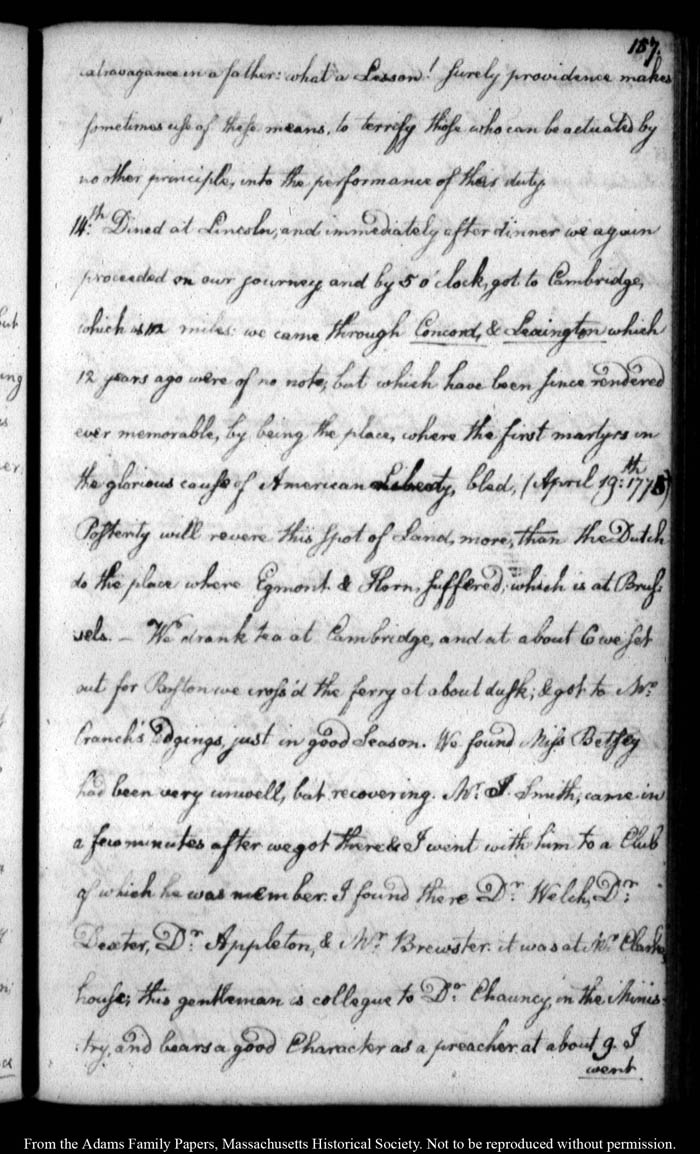 157.
extravagance in a father: what a Lesson! surely providence makes
sometimes use of these means, to terrify those who can be actuated by
no other principle, into the performance of their duty.
14.th Dined at Lincoln, and immediately after dinner we again
proceeded on our journey and by 5 o'clock, got to Cambridge,
which is 12 miles: we came through Concord, & Lexington which
12 years ago were of no note, but which have been since rendered
ever memorable, by being the place, where the first martyrs in
the glorious cause of American Liberty, bled, (April 19:th 1775)
Posterity will revere this spot of Land, more, than the Dutch
do the place where Egmont & Horn, suffered, which is at Brus-
sels. — We drank tea at Cambridge, and at about 6 we set
out for Boston we cross'd the ferry at about dusk; & got to Mr.
Cranch's lodgings, just in good Season. We found Miss Betsey
had been very unwell, but recovering. Mr. I. Smith, came in
a few minutes after we got there & I went with him to a Club
of which he was member. I found there Dr. Welch, Dr.
Dexter, Dr. Appleton, & Mr. Brewster. it was at Mr. Clarke's
house; this gentleman is collegue to Dr. Chauncy, in the Minis-
:try, and bears a good Character as a preacher. at about 9. I
went
From the Adams Family Papers, Massachusetts Historical Society. Not to be reproduced without permission.